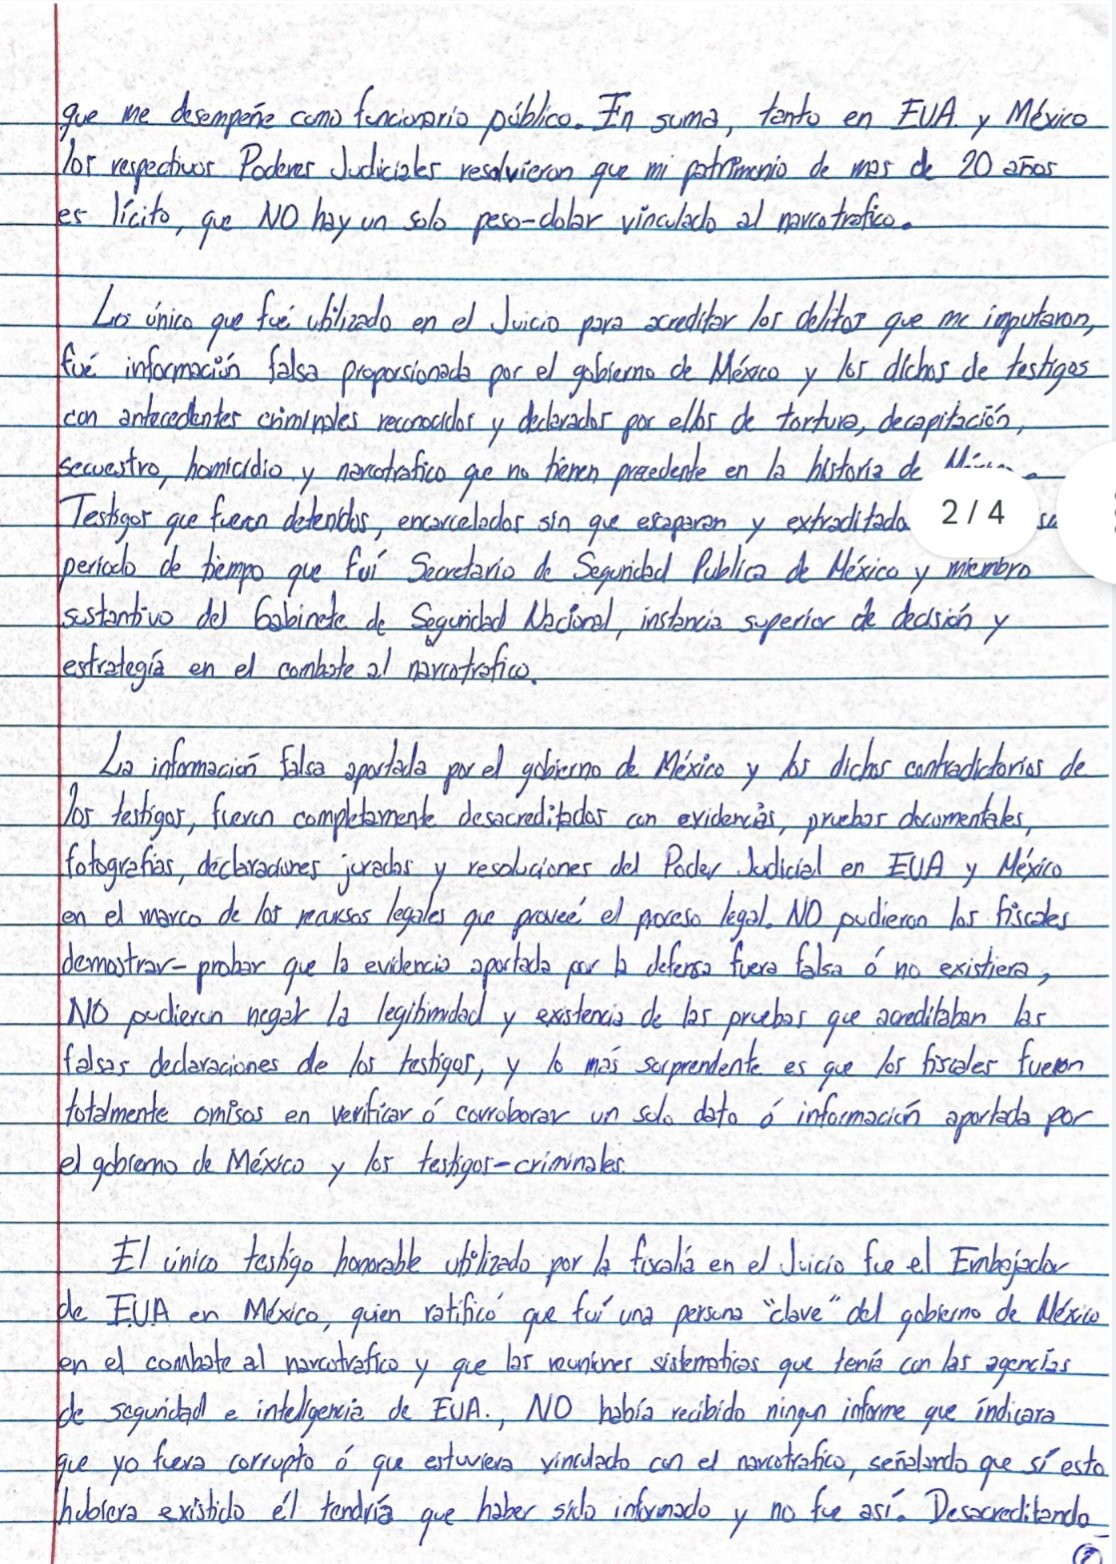 que me desempeñe como funcionario público. En suma, tanto en EUA. y México
los respectivos Poderes Judiciales resolvieron que mi patrimonio de mas de 20 años
es lícito, que NO hay un solo peso-dolar vinculado al narcotrafico.
Lo único que fué utilizado en el Juicio para acreditar los delitos que me imputaron,
fué información falsa proporsionada por el gobierno de México y los dichos de testigos
con antecedentes criminales reconocidos y declarados por ellos de tortura, decapitación,
secuestro, homicidio y narcotrafico que no tienen precedente en la historia de
Testigos que fueron detenidos, encarcelados sin que escaparan y extraditado
2 / 4
periodo de tiempo que fuí Secretario de Seguridad Publica de México y miembro
sustantivo del Gabinete de Seguridad Nacional, instancia superior de decisión y
estrategía en el combate al narcotrafico.
La información falsa aportada por el gobierno de México y los dichos contradictorios de
los testigos, fueron completamente desacreditados con evidencias, pruebas documentales,
fotografias, declaraciones juradas y resoluciones del Poder Judicial en EUA y México
en el marco de los recursos legales que proveé el proceso legal. NO pudieron los fiscales
demostrar-probar que la evidencia aportada por la defensa fuera falsa ó no existiera,
NO pudieron negar la legitimidad y existencia de las pruebas que acreditaban las
falsas declaraciones de los testigos, y lo más sorprendente es que los fiscales fueron
totalmente omisos en verificar ó corroborar un solo dato ó información aportada por
el gobierno de México y los testigos-criminales.
El único testigo honorable utilizado por la fiscalía en el Juicio fue el Embajador
de EUA en México, quien ratificó que fuí una persona "clave" del gobierno de México
en el combate al narcotrafico y que las reuniones sistematicas que tenía con las agencias
de seguridad e inteligencia de EUA., NO había recibido ningun informe que indicara
que yo fuera corrupto ó que estuviera vinculado con el narcotrafico, señalando que sí esto
hubiera existido él tendría que haber sido informado y no fue así. Desacreditando
2